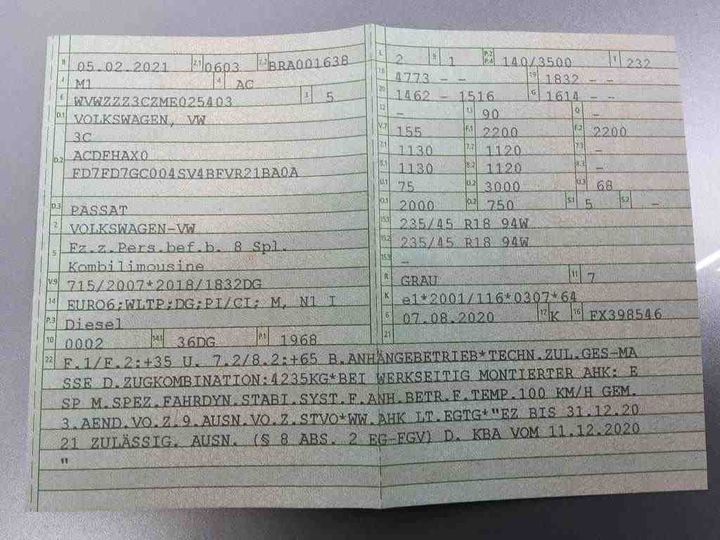 B 05.02.2021 2.1 0603 2.2 BRA001638
J M1 4 AC
E WVWZZZ3CZME025403 3 5
D.1 VOLKSWAGEN, VW
3C
D.2 ACDFHAX0
FD7FD7GC004SV4BFVR21BA0A
D.3 PASSAT
2 VOLKSWAGEN-VW
5 Fz.z.Pers.bef.b. 8 Spl.
Kombilimousine
V.9 715/2007*2018/1832DG
14 EURO6;WLTP;DG;PI/CI; M, N1 I
P.3 Diesel
10 0002 14.1 36DG P.1 1968
L 2 9 1 P.2 P.4 140/3500 T 232
18 4773 - - 19 1832 - -
20 1462 - 1516 G 1614 - -
12 - 13 90 Q -
V.7 155 F.1 2200 F.2 2200
7.1 1130 7.2 1120 7.3 -
8.1 1130 8.2 1120 8.3 -
U.1 75 U.2 3000 U.3 68
O.1 2000 O.2 750 S.1 5 S.2 -
15.1 235/45 R18 94W
15.2 235/45 R18 94W
15.3 -
R GRAU 11 7
K e1*2001/116*0307*64
6 07.08.2020 17 K 16 FX398546
21
22 F.1/F.2:+35 U. 7.2/8.2:+65 B.ANHÄNGEBETRIEB*TECHN.ZUL.GES-MA
SSE D.ZUGKOMBINATION:4235KG*BEI WERKSEITIG MONTIERTER AHK: E
SP M.SPEZ.FAHRDYN.STABI.SYST.F.ANH.BETR.F.TEMP.100 KM/H GEM.
3.AEND.VO.Z.9.AUSN.VO.Z.STVO*WW.AHK LT.EGTG*"EZ BIS 31.12.20
21 ZULÄSSIG. AUSN. (§ 8 ABS. 2 EG-FGV) D. KBA VOM 11.12.2020
"